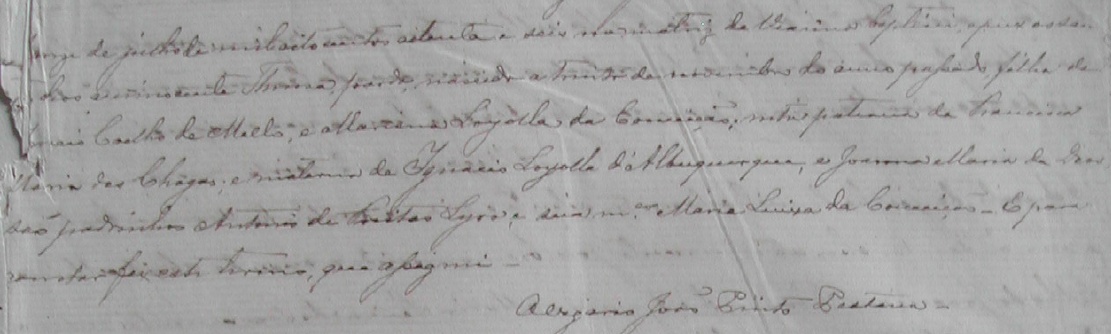 de julho de mil oitocentos setenta e seis na matriz de Viçosa baptisei, e puz os san
tos oleos a innocente Thereza, parda, nascida a trinta de novembro do anno passado, filha de
Coelho de Mello, e Marianna Loyolla da Conceição; neta paterna de Francisca
Maria das Chagas; e materna de Ignacio Loyolla d'Albuquerque, e Joanna Maria de Deos
são padrinhos Antonio de Freitas Lyra, e sua m.er Maria Luiza da Conceição - E para
constar fiz este termo, que assignei -
João Pinto